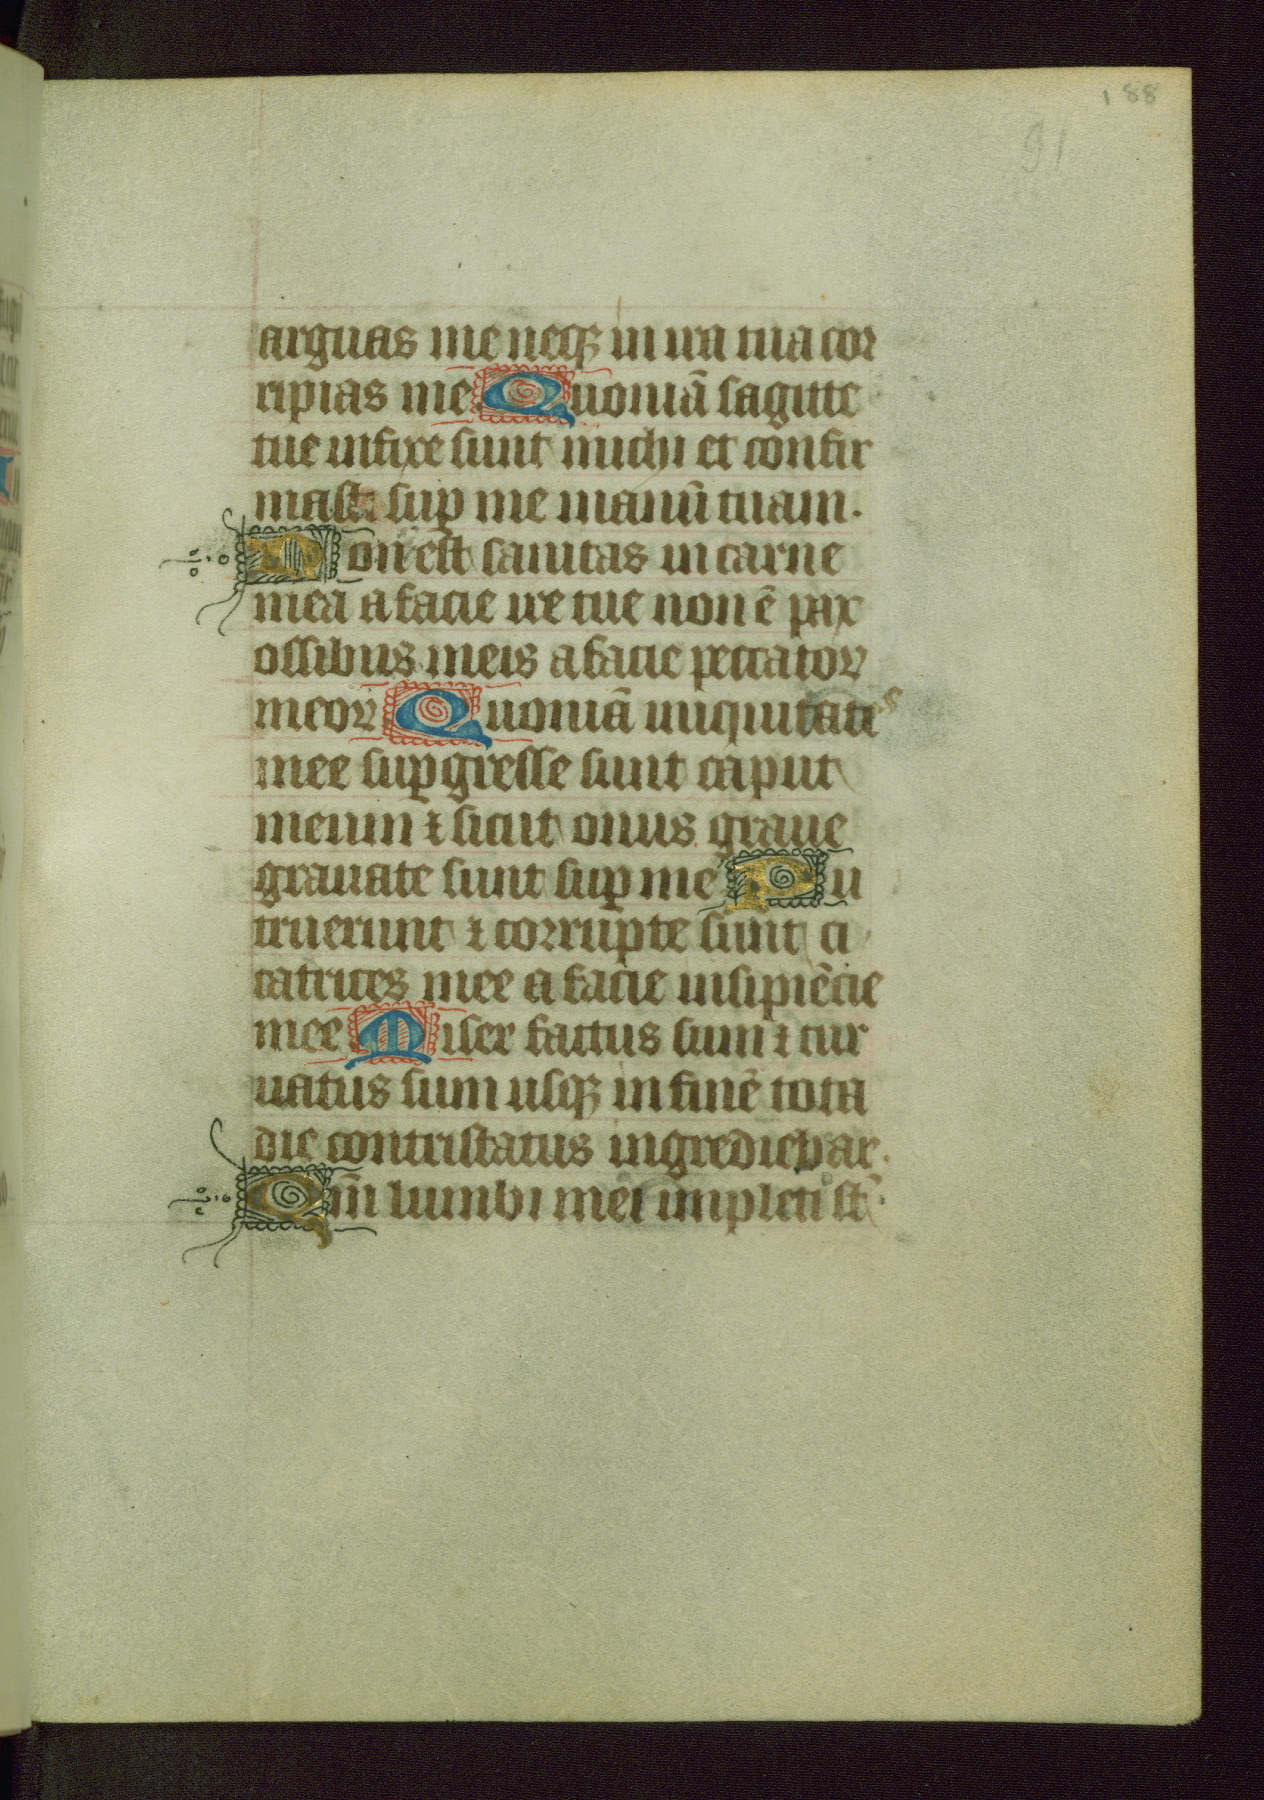 188
91
arguas me neqꝫ in ira tua cor
ripias me Quoniā sagitte
tue infixe sunt michi et confir
masti suꝑ me manū tuam.
Non est sanitas in carne
mea a facie ire tue non ē pax
ossibus meis a facie peccatoꝝ
meoꝝ Quoniā iniquitates
mee suꝑgresse sunt caput
meum ⁊ sicut onus graue
grauate sunt suꝑ me Pu
truerunt ⁊ corrupte sunt ci
catrices mee a facie insipiēcie
mee Miser factus sum ⁊ cur
uatus sum usqꝫ in finē tota
die contristatus ingrediebar.
Qm̄ lumbi mei impleti st̄.